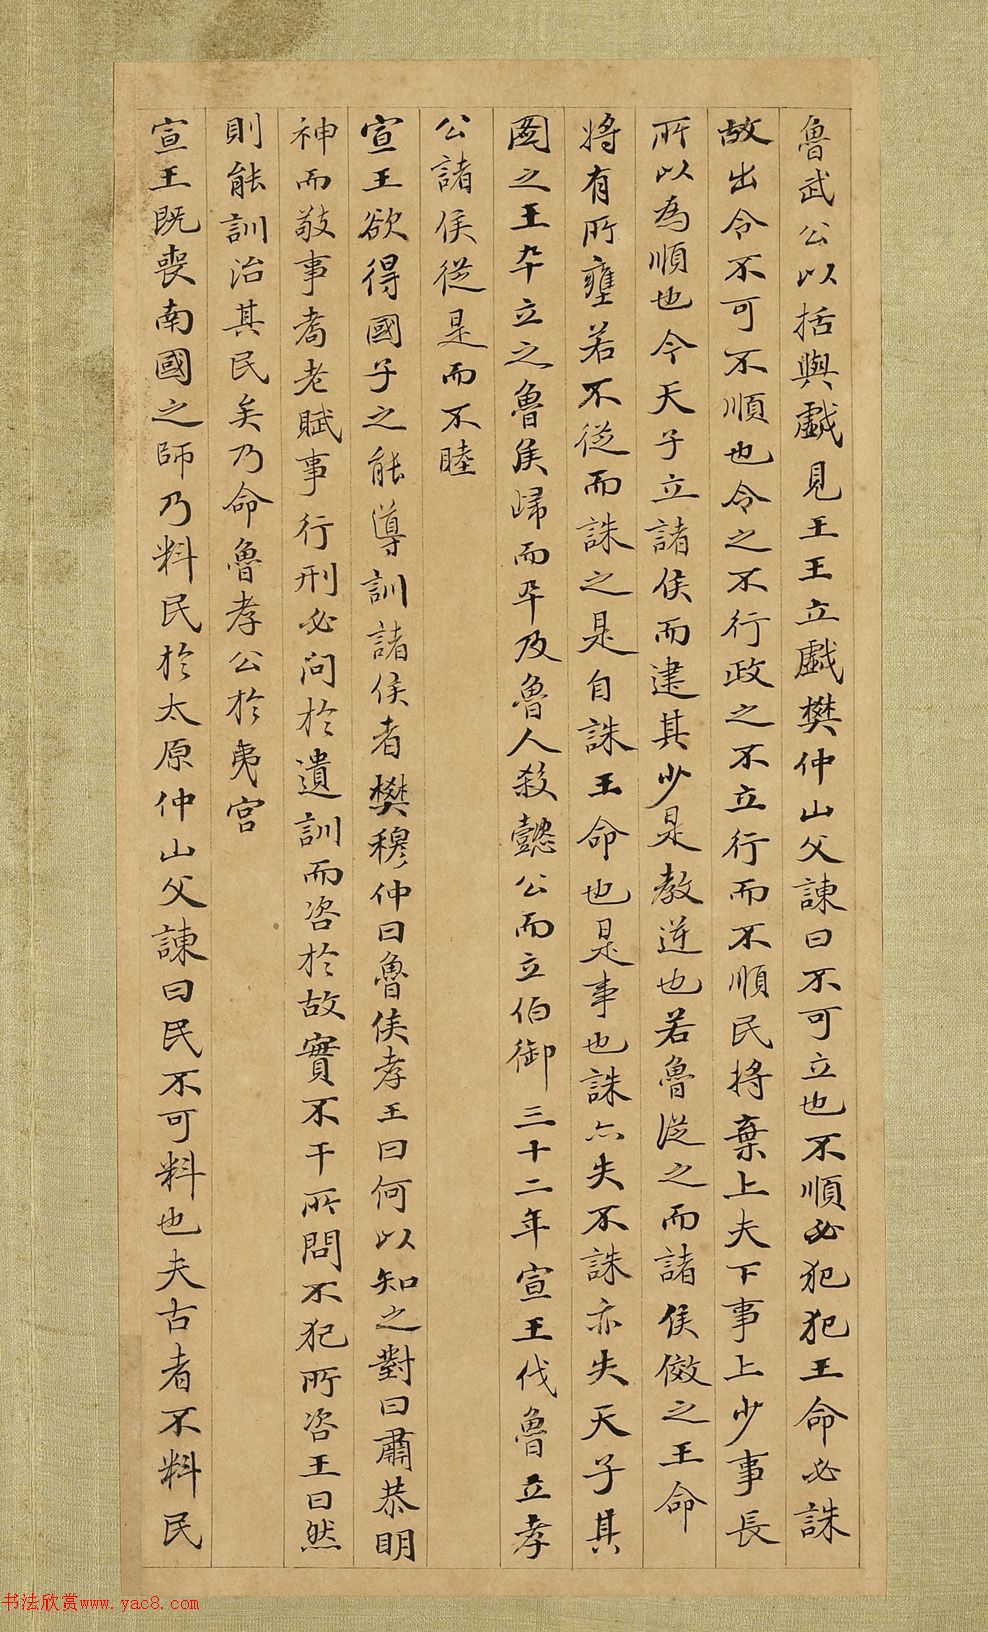 魯武公以括與戲見王王立戲樊仲山父諫曰不可立也不順必犯犯王命必誅
故出令不可不順也令之不行政之不立行而不順民將棄上夫下事上少事長
所以為順也今天子立諸侯而建其少是教逆也若魯從之而諸侯傚之王命
將有所壅若不從而誅之是自誅王命也是事也誅亦失不誅亦失天子其
圖之王卒立之魯侯歸而卒及魯人殺懿公而立伯御 三十二年宣王伐魯立孝
公諸侯從是而不睦
宣王欲得國子之能導訓諸侯者樊穆仲曰魯侯孝王曰何以知之對曰肅恭明
神而敬事耉老賦事行刑必問於遺訓而咨於故實不干所問不犯所咨王曰然
則能訓治其民矣乃命魯孝公於夷宮
宣王既喪南國之師乃料民於太原仲山父諫曰民不可料也夫古者不料民
书法欣赏www.yac8.com